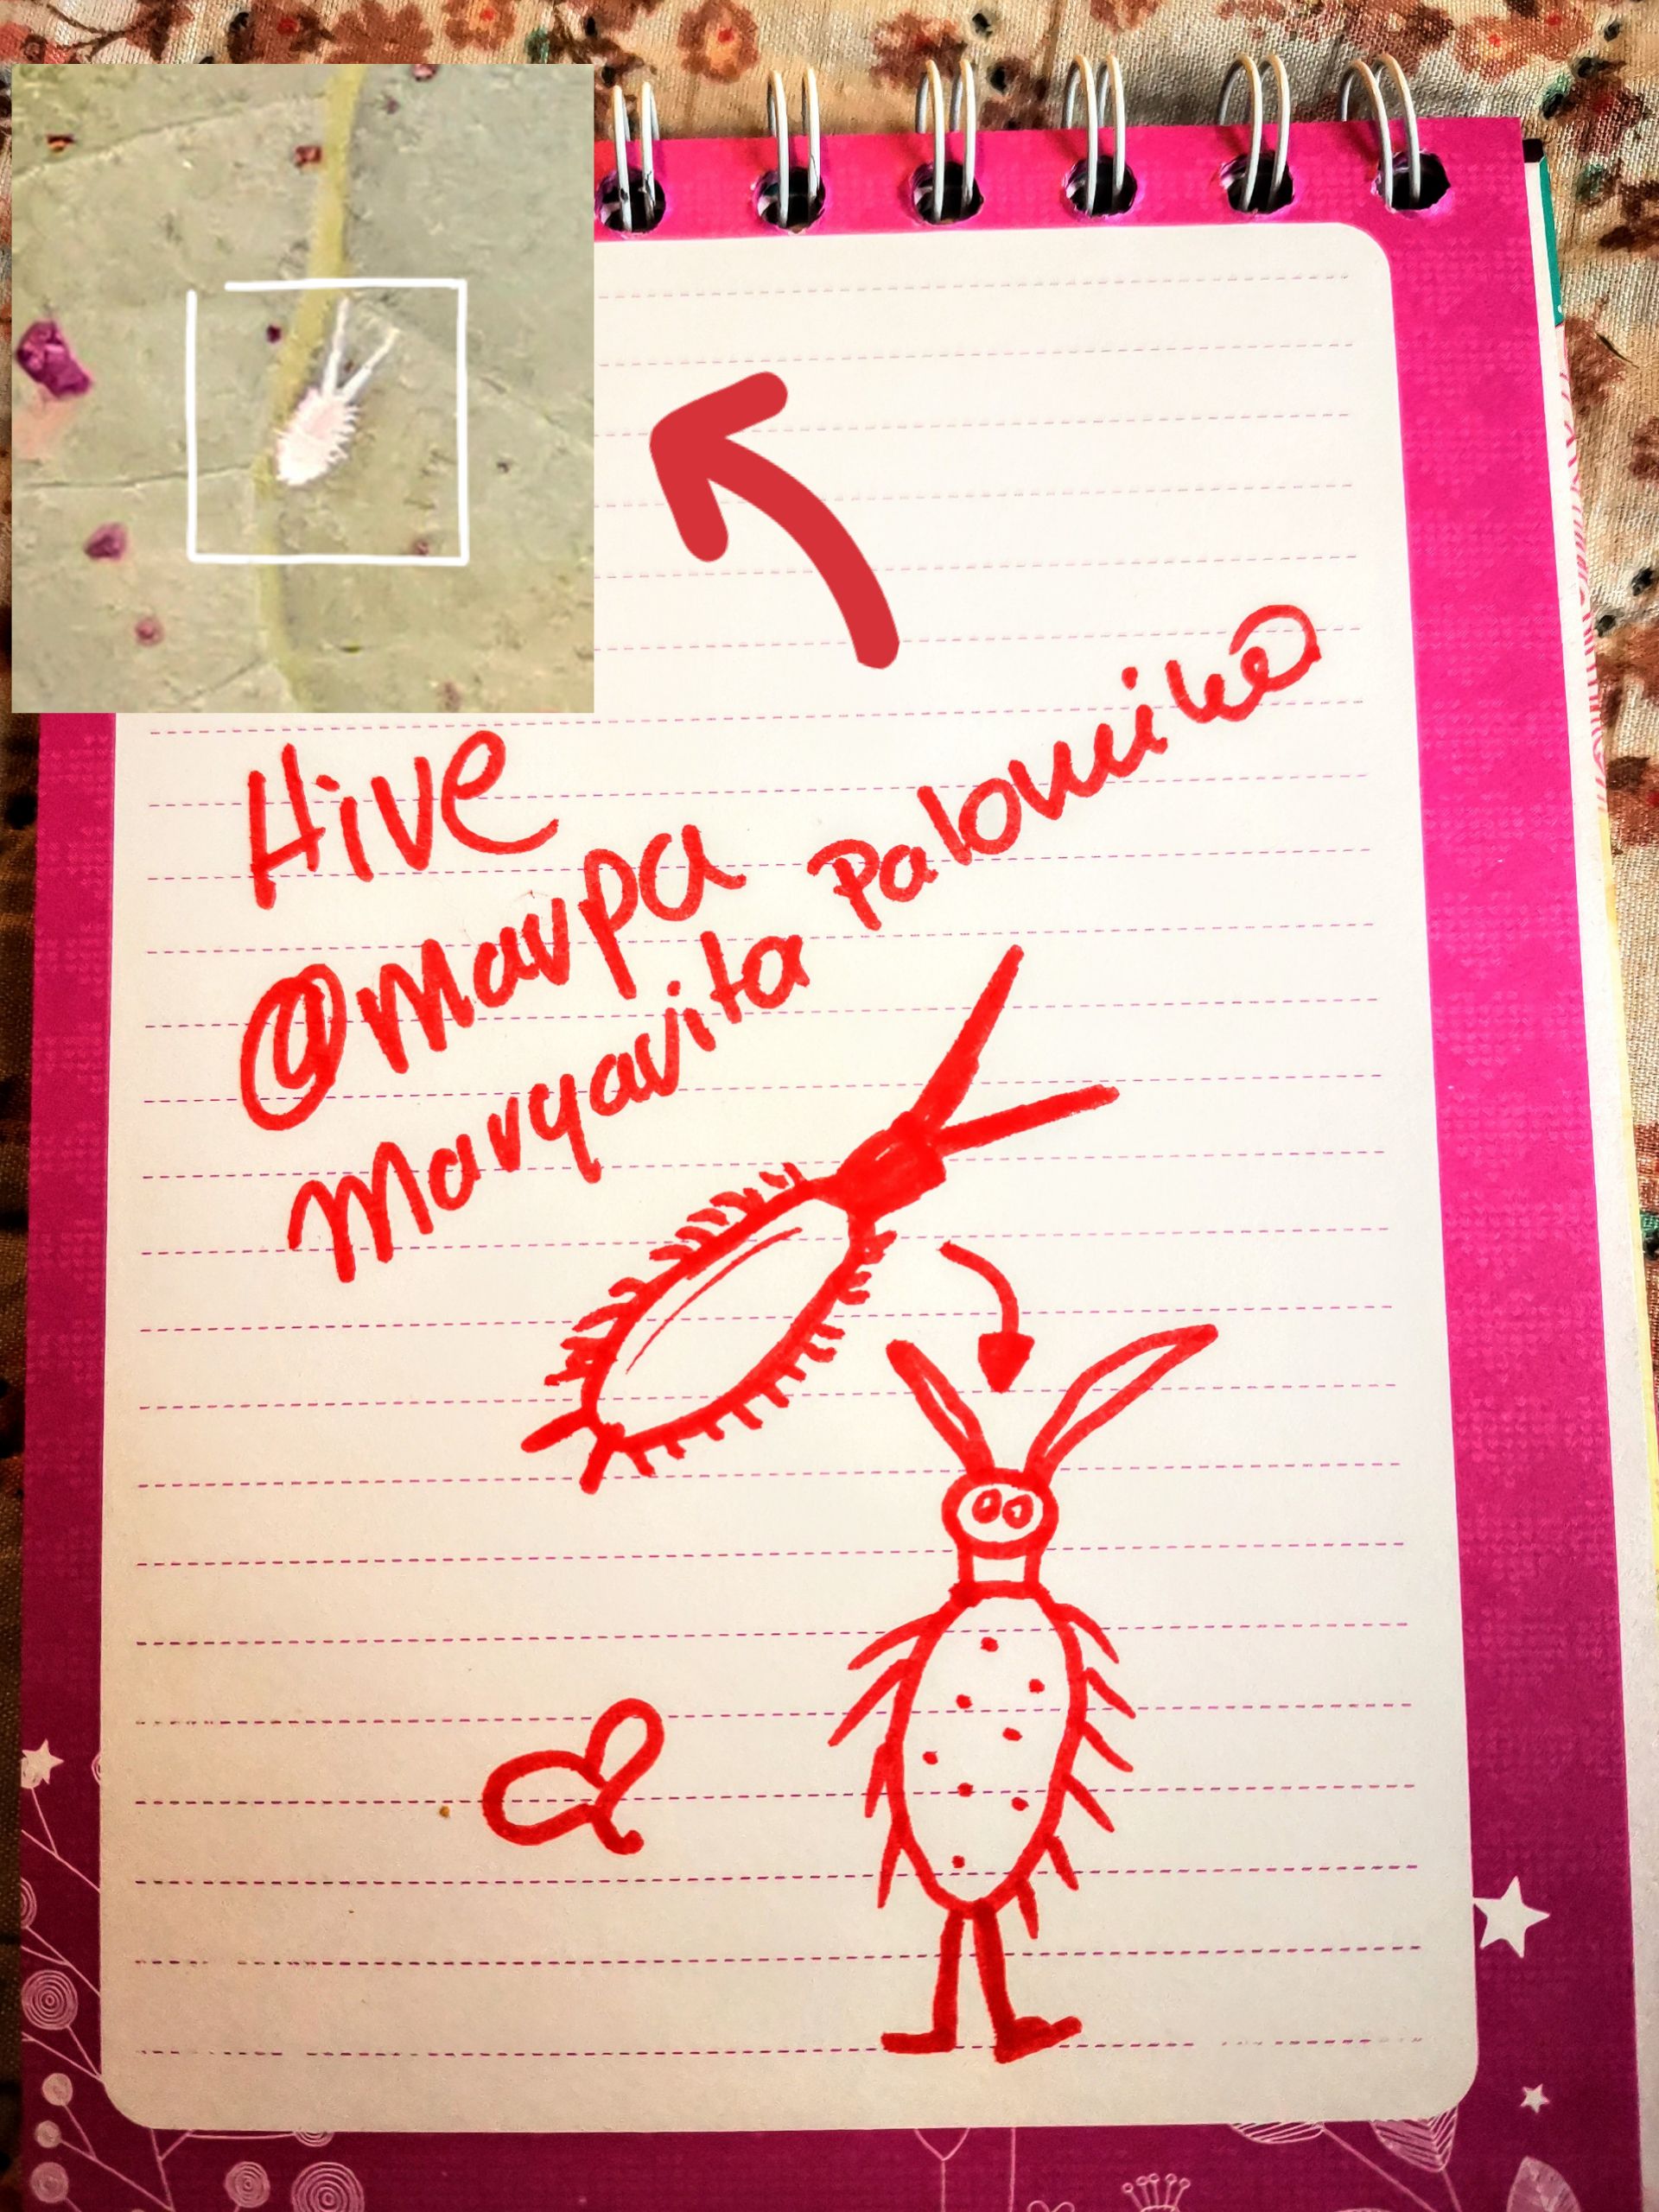 Hive
@marpa
Margarita Palomino